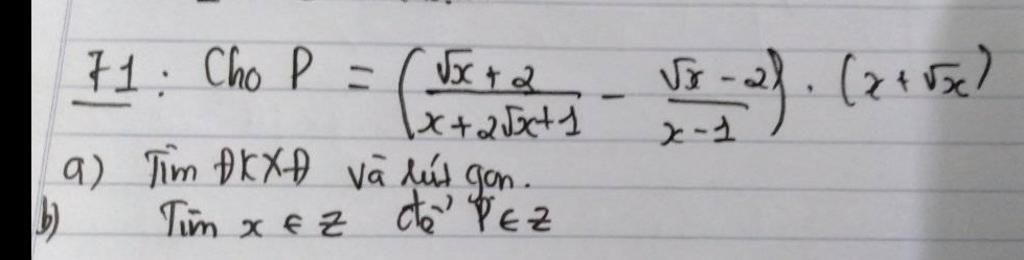 71: Cho P = ( (√x + 2)/(x + 2√x + 1) - (√x - 2)/(x - 1) ) . (x + √x)
a) Tìm ĐKXĐ và rút gọn.
b) Tìm x ∈ Z để P ∈ Z